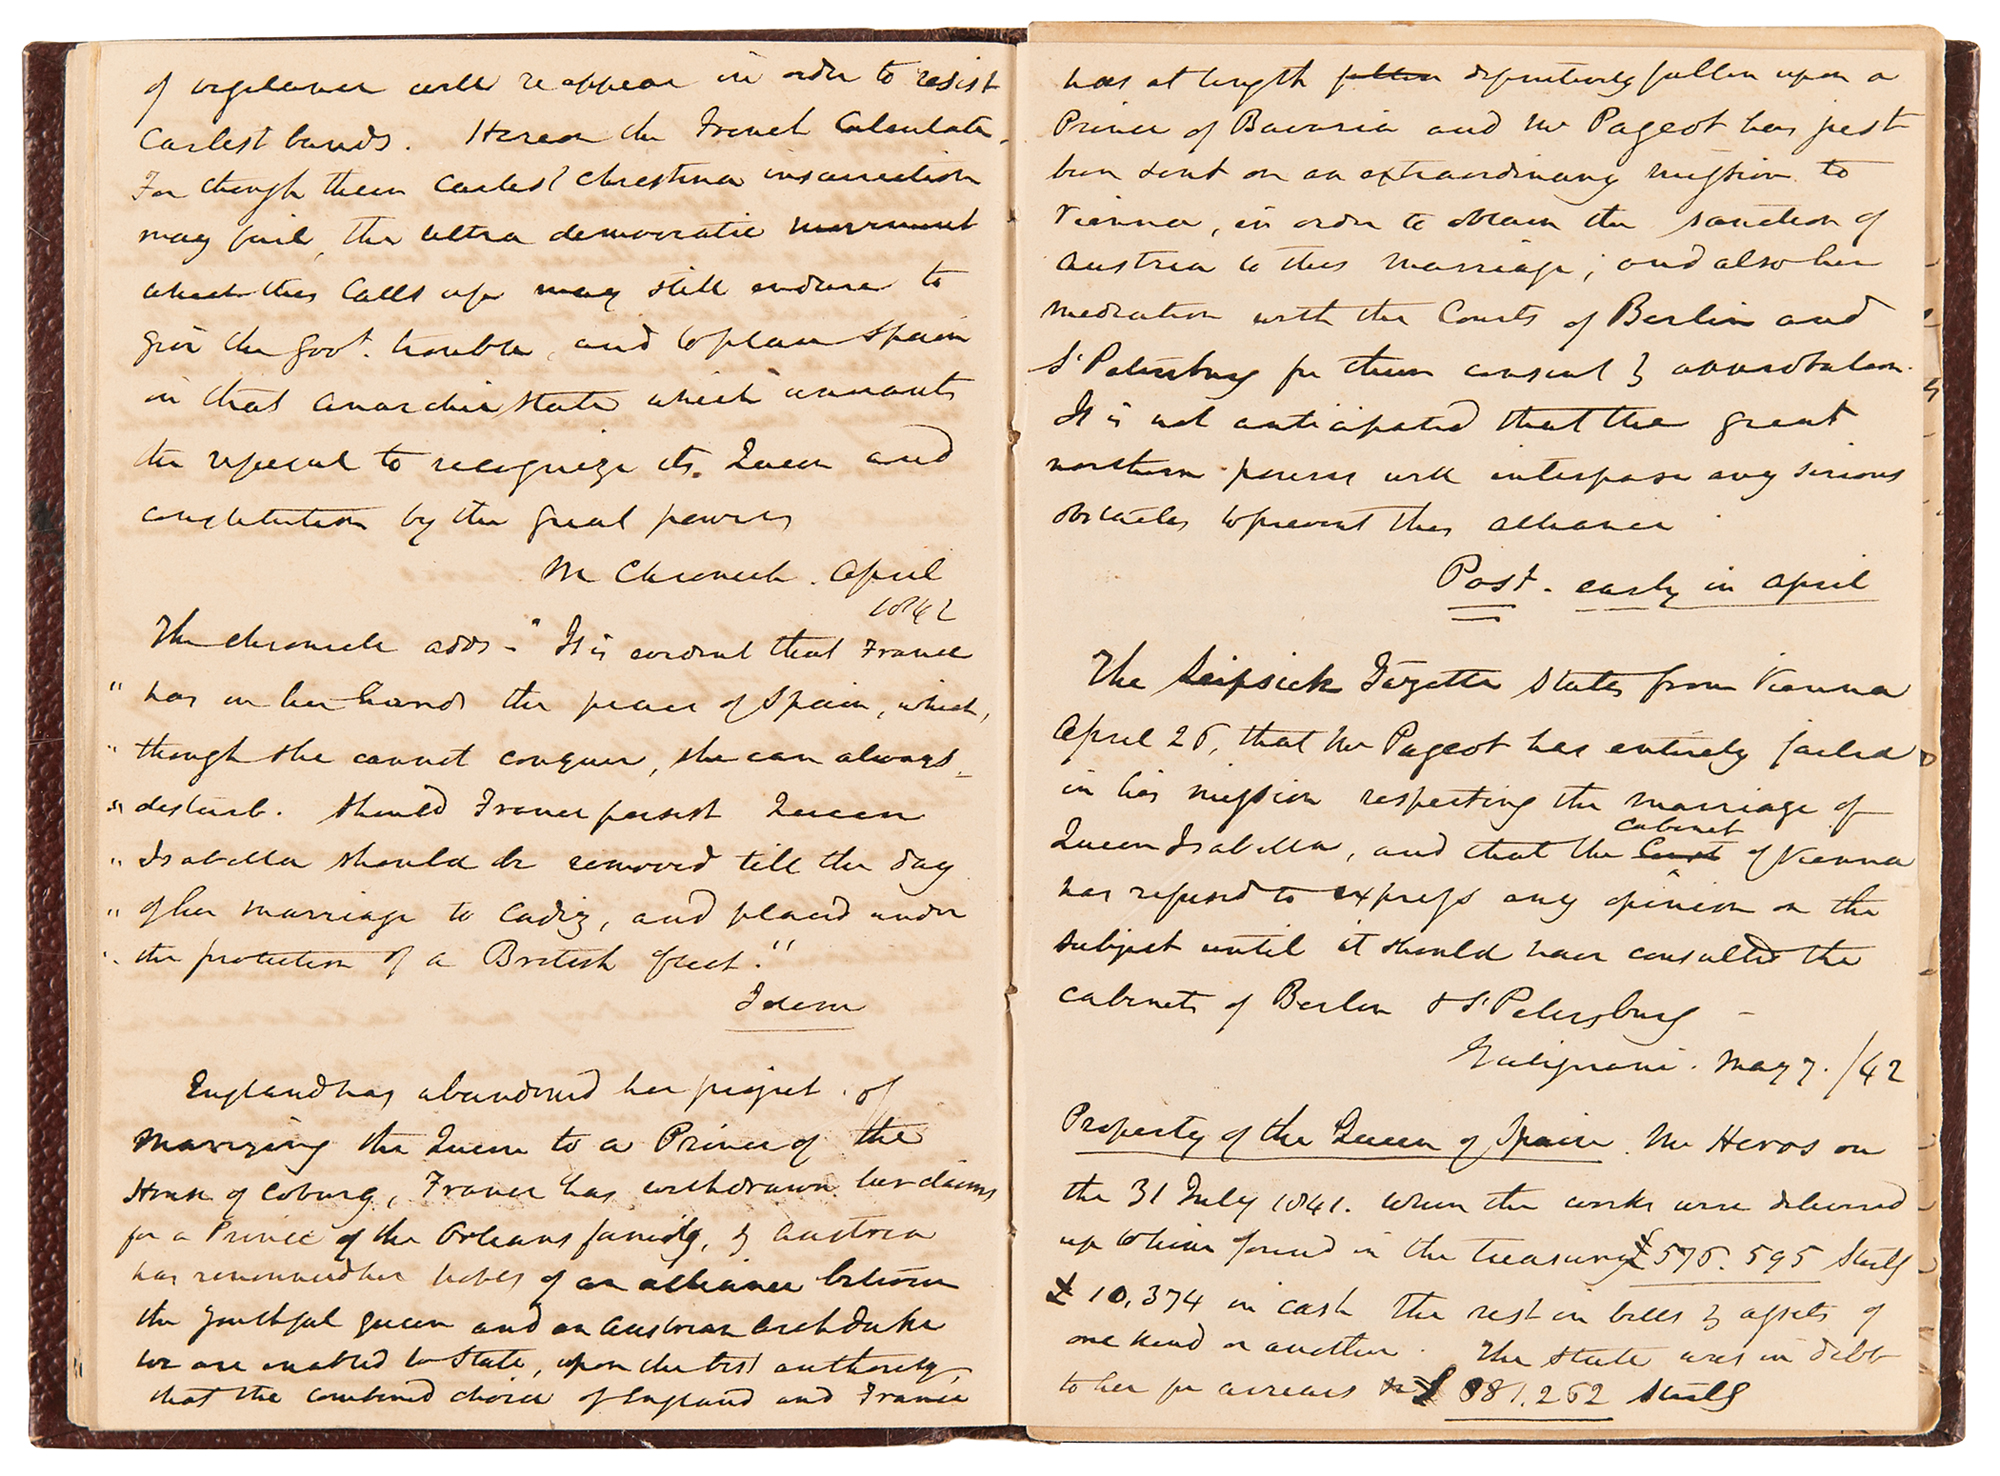 of vigilance will reappear in order to resist
Carlist bands. Hereon the French Calculate.
For though their Carlist Christina insurrection
may fail, the ultra democratic movement
which this Calls up may still endure to
give the Govt. trouble, and to place Spain
in that anarchic state which warrants
the refusal to recognize its Queen and
constitution by the great powers
M Chronicle. April
1842
The Chronicle adds - "It is evident that France
" has in her hands the peace of Spain, which,
" though she cannot conquer, she can always
" disturb. Should France persist Queen
" Isabella should be removed till the day
" of her marriage to Cadiz, and placed under
" the protection of a British fleet."
Idem
England has abandoned her project of
Marrying the Queen to a Prince of the
House of Coburg, France has withdrawn her claims
for a Prince of the Orleans family, & Austria
has renounced her hopes of an alliance between
the youthful queen and an Austrian Archduke
We are enabled to State, upon the best authority,
that the combined choice of England and France
has at length fallen definitively fallen upon a
Prince of Bavaria and Mr Pageot has just
been sent on an extraordinary mission to
Vienna, in order to obtain the sanction of
Austria to this marriage; and also her
mediation with the Courts of Berlin and
St Petersburg for their consent & approbation.
It is not anticipated that the great
northern powers will interpose any serious
obstacles to prevent this alliance
Post. early in April
The Leipsick Gazette States from Vienna
April 26, that Mr Pageot has entirely failed
in his mission respecting the marriage of
cabinet
Queen Isabella, and that the Court of Vienna
has refused to express any opinion on the
subject until it should have consulted the
cabinets of Berlin & St Petersburg -
Galignani. May 7. /42
Property of the Queen of Spain. Mr Heros on
the 31 July 1841. when the works were delivered
up to him found in the treasury £576.595 Sterlg
£10,374 in cash the rest in bills & assets of
one kind or another. The State was in debt
to her for arrears £881.262 Sterlg